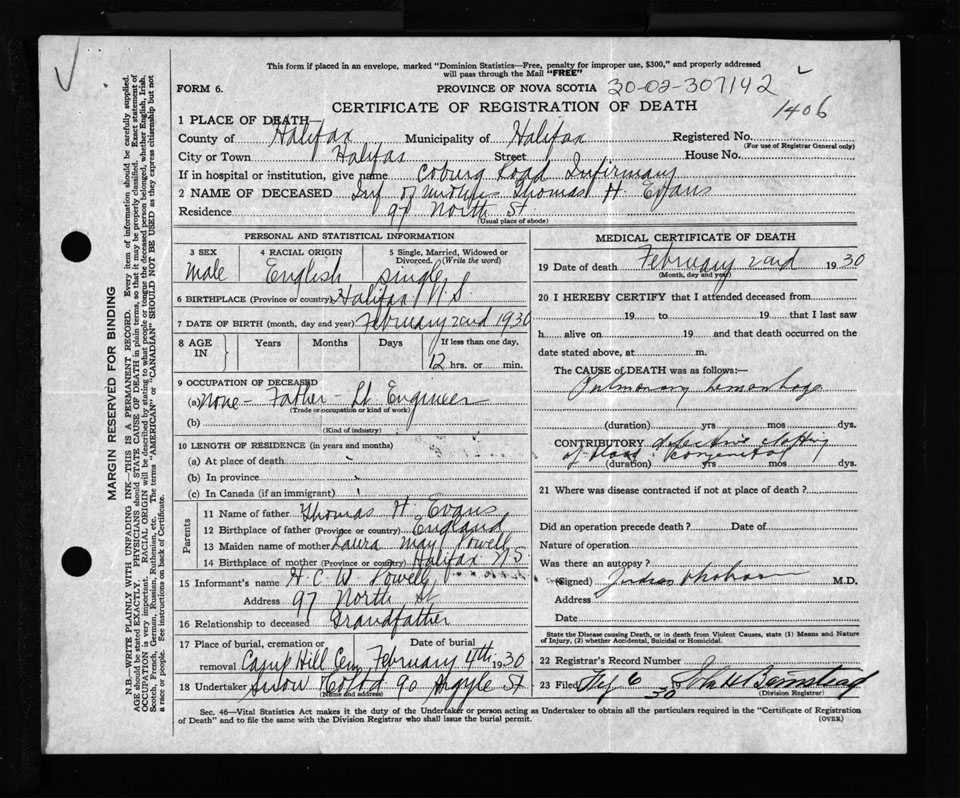 This form if placed in an envelope, marked "Dominion Statistics—Free, penalty for improper use, $300," and properly addressed
will pass through the Mail "FREE"
FORM 6. PROVINCE OF NOVA SCOTIA 30-02-307142
CERTIFICATE OF REGISTRATION OF DEATH 1406
1 PLACE OF DEATH—
County of Halifax Municipality of Halifax Registered No.
(For use of Registrar General only)
City or Town Halifax Street House No.
If in hospital or institution, give name Coburg Road Infirmary
2 NAME OF DECEASED Inf of Mr & Mrs Thomas H Evans
Residence 97 North St
(Usual place of abode)
PERSONAL AND STATISTICAL INFORMATION
3 SEX 4 RACIAL ORIGIN 5 Single, Married, Widowed or
Divorced. (Write the word)
Male English Single
6 BIRTHPLACE (Province or country) Halifax N.S.
7 DATE OF BIRTH (month, day and year) February 2nd 1930
8 AGE IN Years Months Days If less than one day,
12 hrs. or min.
9 OCCUPATION OF DECEASED
(a) None - Father - Lt Engineer
(Trade or occupation or kind of work)
(b)
(Kind of industry)
10 LENGTH OF RESIDENCE (in years and months)
(a) At place of death
(b) In province
(c) In Canada (if an immigrant)
Parents
11 Name of father Thomas H. Evans
12 Birthplace of father (Province or country) England
13 Maiden name of mother Laura May Powell
14 Birthplace of mother (Province or country) Halifax N.S.
15 Informant's name H C W Powell
Address 97 North St
16 Relationship to deceased Grandfather
17 Place of burial, cremation or Date of burial
removal Camp Hill Cem February 4th 1930
18 Undertaker Snow & Co Ltd 90 Argyle St
(Name and address)
MEDICAL CERTIFICATE OF DEATH
19 Date of death February 2nd 1930
(Month, day and year)
20 I HEREBY CERTIFY that I attended deceased from
19 to 19 that I last saw
h alive on 19 and that death occurred on the
date stated above, at m.
The CAUSE of DEATH was as follows:—
Pulmonary hemorrhage
(duration) yrs mos dys.
CONTRIBUTORY defective clotting
of blood congenital
(duration) yrs mos dys.
21 Where was disease contracted if not at place of death?
Did an operation precede death? Date of
Nature of operation
Was there an autopsy?
(Signed) M.D.
Address
Date
State the Disease causing Death, or in death from Violent Causes, state (1) Means and Nature
of Injury, (2) whether Accidental, Suicidal or Homicidal.
22 Registrar's Record Number
23 Filed Fey 6 1930
(Division Registrar)
Sec. 46—Vital Statistics Act makes it the duty of the Undertaker or person acting as Undertaker to obtain all the particulars required in the "Certificate of Registration
of Death" and to file the same with the Division Registrar who shall issue the burial permit. (OVER)
MARGIN RESERVED FOR BINDING
N.B.—WRITE PLAINLY WITH UNFADING INK—THIS IS A PERMANENT RECORD. Every item of information should be carefully supplied.
AGE should be stated EXACTLY. PHYSICIANS should STATE CAUSE OF DEATH in plain terms, so that it may be properly classified. Exact statement of
OCCUPATION is very important. RACIAL ORIGIN will be described by stating to what people or tongue the deceased person belonged, whether English, Irish,
Scotch, French, German, Russian, Ruthenian, etc. The terms "AMERICAN" or "CANADIAN" SHOULD NOT BE USED as they express citizenship but not
a race or people. See instructions on back of Certificate.